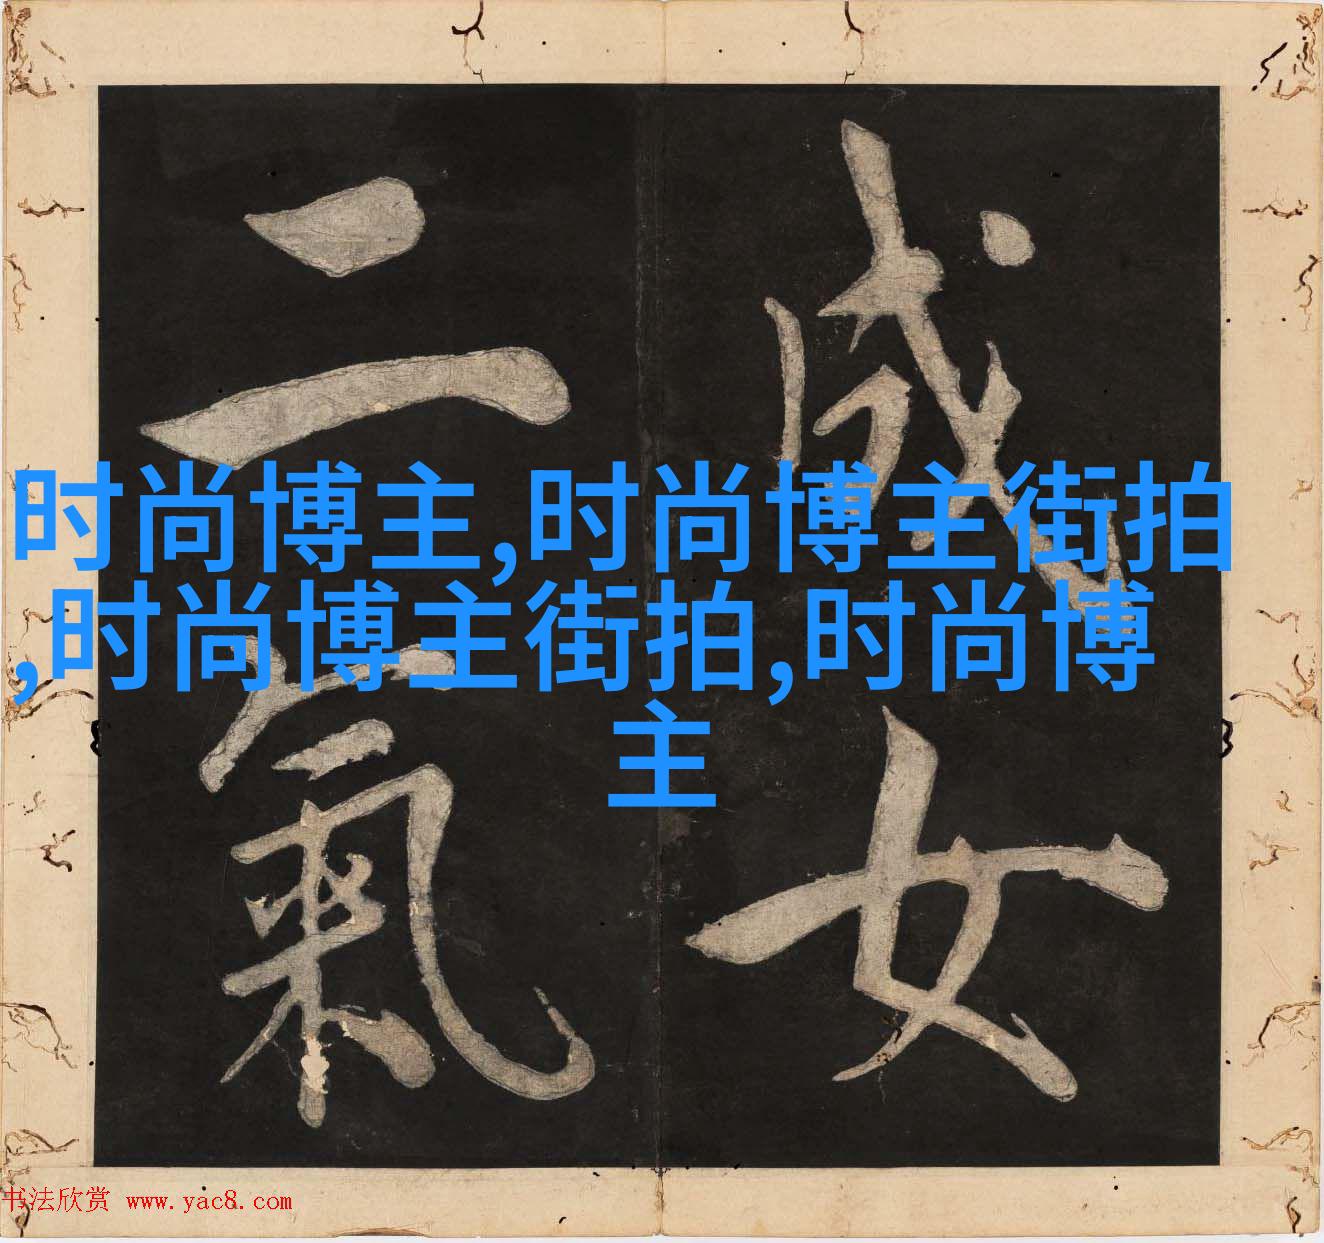 成女
二氣
时尚博主,时尚博主街拍
,时尚博主街拍,时尚博
主
书法欣赏 www.yac8.com